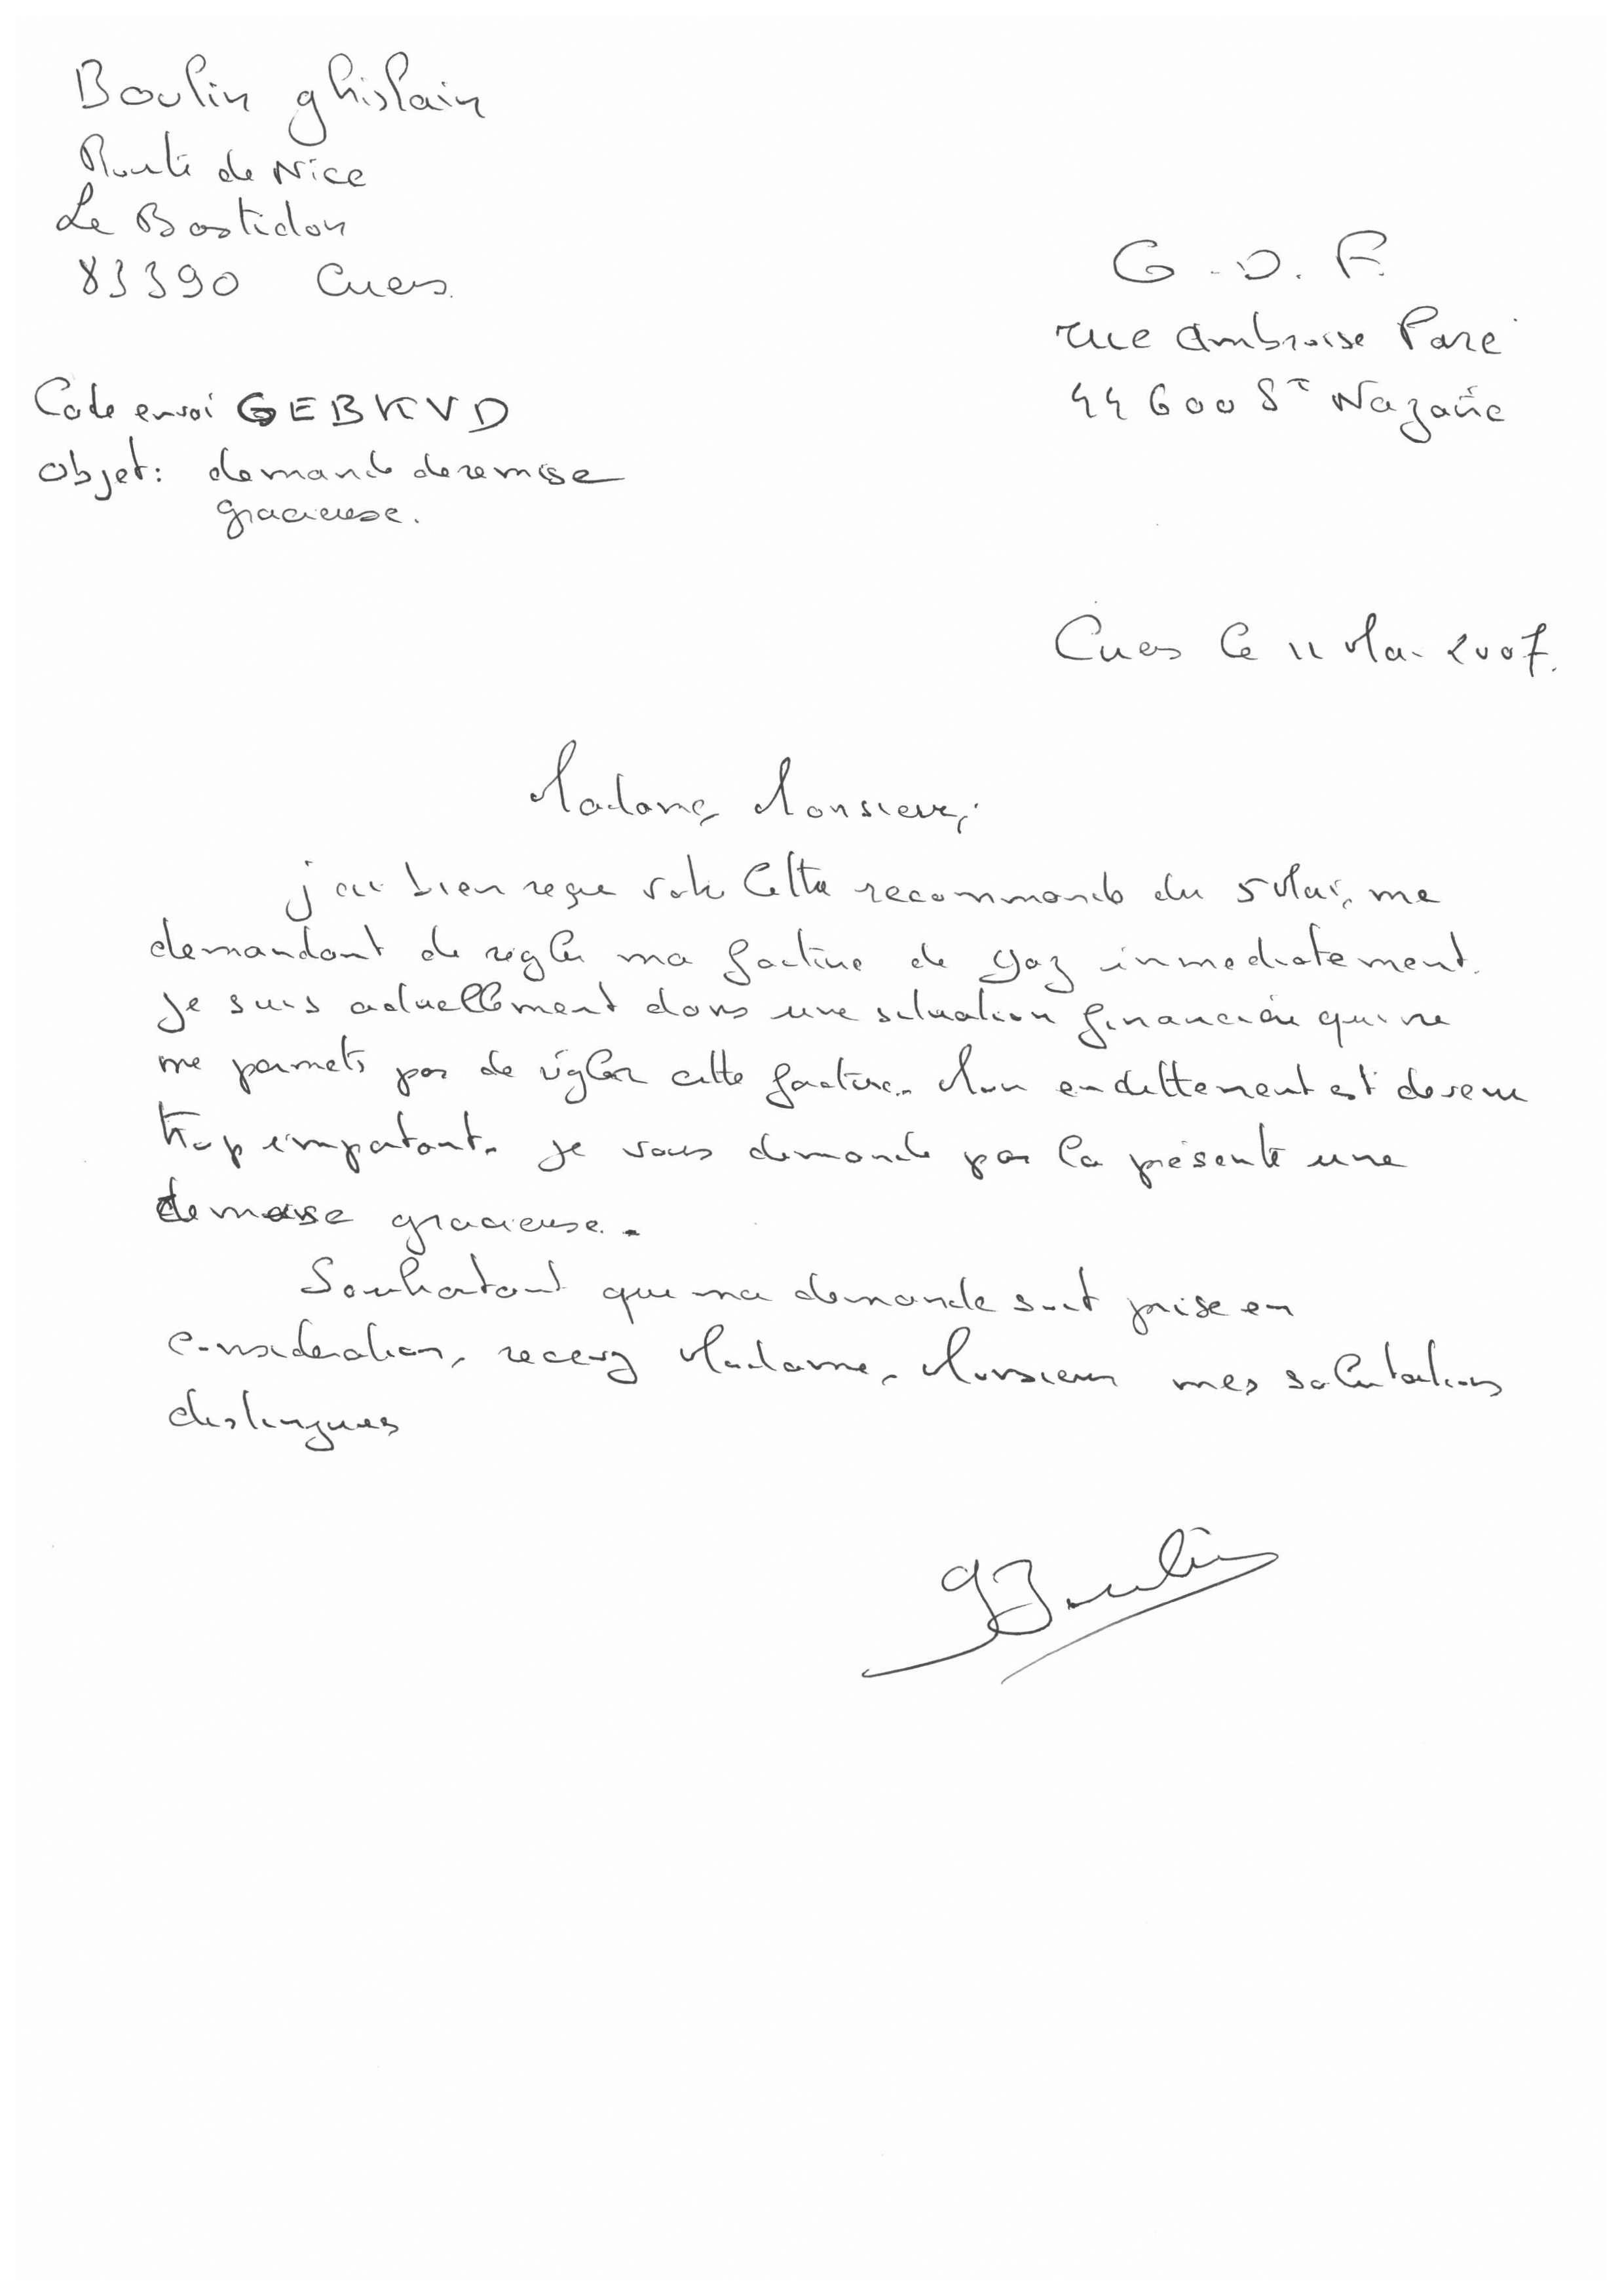 Boulin ghislain
Route de Nice
Le Bastidon
83390 Cuers.
G.D.F.
rue Ambroise Paré
44600 St Nazaire
Code envoi GEBKVD
Objet: demande de remise
gracieuse.
Cuers le 11 Mai 2007.
Madame, Monsieur,
j'ai bien reçue votre lettre recommande du 5 Mai, me
demandant de régler ma facture de gaz inmediatement.
Je suis actuellement dans une situation financière qui ne
me permets pas de régler cette facture. Mon endettement est devenu
trop important. Je vous demande par la présente une
remise gracieuse.
Souhaitant que ma demande soit prise en
consideration, recevez Madame, Monsieur mes salutations
distingues
GBoulin